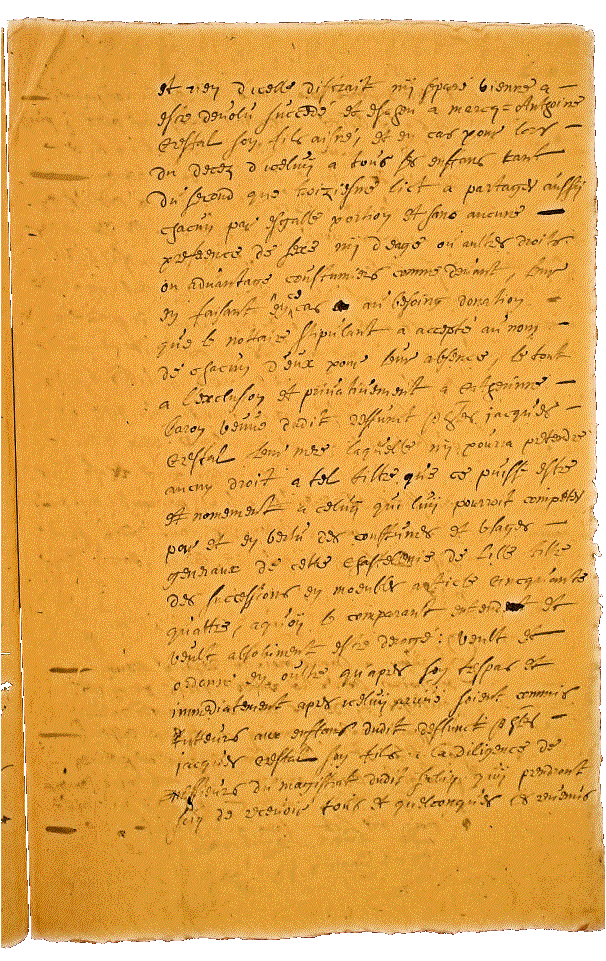 et rien d'icelle distrait nÿ separé vienne a
estre devolu succedé et eschu a marcq-Anthoine
Crestal soŋ fils aisné, et en cas pour lors
du decez d'iceluÿ a tous les enffans tant
du second que troiziesme lict a partager aussÿ
chacuŋ par esgalle portion et sans aucune
preference de sexe nÿ d'eage ou aultres droits
ou advantage coustumiers comme devant, leur
eŋ faisant eŋ ce cas au besoing donation
que le nottaire stipulant a accepté au nom
de chacuŋ d'eux pour leur absence, le tout
a l'exclusion et privativement a Catherinne
baron veuve dudit deffunct jacques
Crestal leur mere laquelle nÿ pourra pretendre
aucuŋ droit a tel tiltre que ce puisse estre
et nomement a celuÿ quy luÿ pourroit competer
par et eŋ vertu des coustumes et usages
generaux de cette Chastelenie de Lille tiltre
des successions eŋ moeubles article cincquante
quattre, aquoÿ le comparant entend et
veult absolument estre derogé: veult et
ordonne eŋ oultre qu'apres soŋ trespas et
immediatement apres iceluÿ soient commis
tuteurs aux enffans dudit deffunct
jacques Crestal soŋ fils a la diligence de
messieurs du magistrat dudit quÿ prendront
soiŋ de recevoir tous et quelconques les revenus